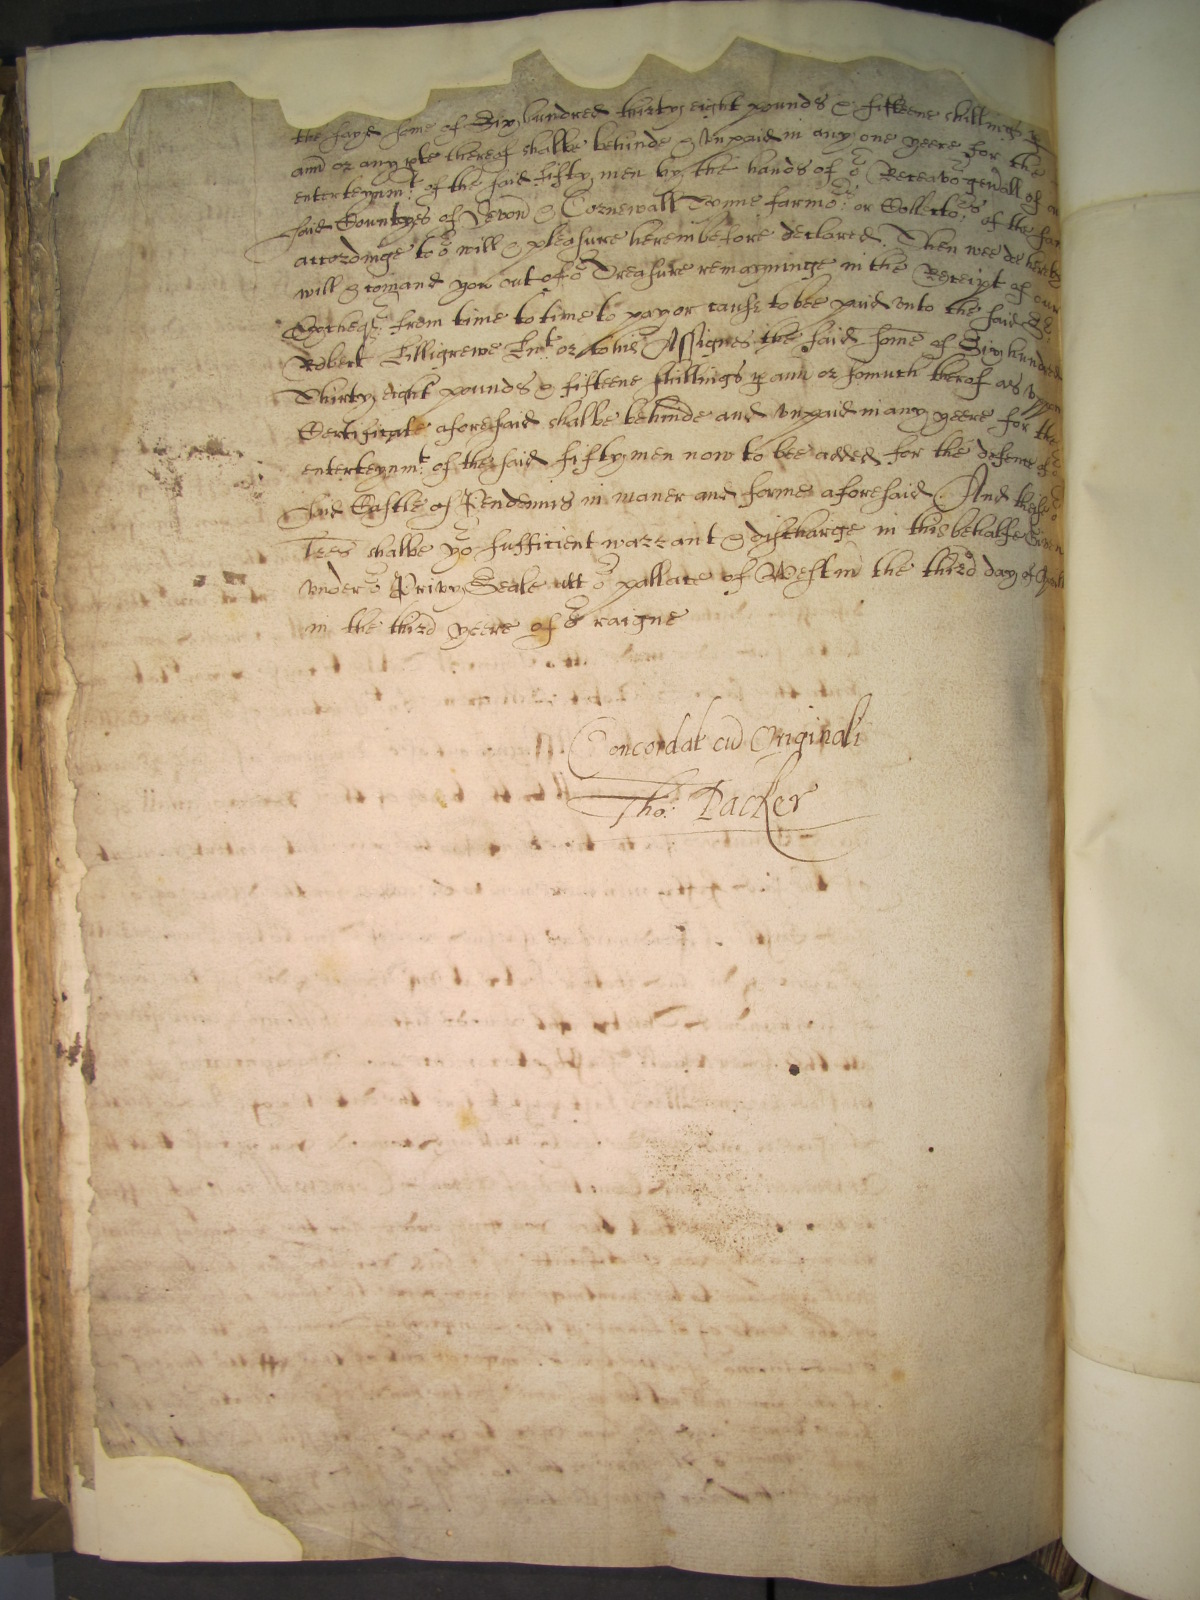 the sayd some of Six hundred thirty eight pounds & fifteene shillings p
ann or any pte thereof shalbe behinde & vnpaid in any one yeere for the
enterteynmt of the said fifty men by the hands of or Receavor genrall of or
said Countyes of Devon & Cornewall Tynne farmor or Collectors of the
accordinge to or will & pleasure hereinbefore declared. Then wee doe hereby
will & comand you out of or Treasure remayninge in the Receipt of our
Excheqr from time to time to pay or cause to bee paid vnto the said Sr
Robert Killigrewe Knt or to his Assignes the said some of Six hundred
Thirty eight pounds & fifteene shillings p ann or somuch therof as vppon
Certificate aforesaid shalbe behinde and vnpaid in any yeere for the
enterteynmt of the said fifty men now to bee added for the defence of or
said Castle of Pendennis in maner and forme aforesaid. And these or
Lres shalbe yor sufficient warrant & discharge in this behalfe Given
vnder or Privy Seale att or pallace of Westm the third day of
in the third yeere of or raigne
Concordat cu Originali
Tho: Packer